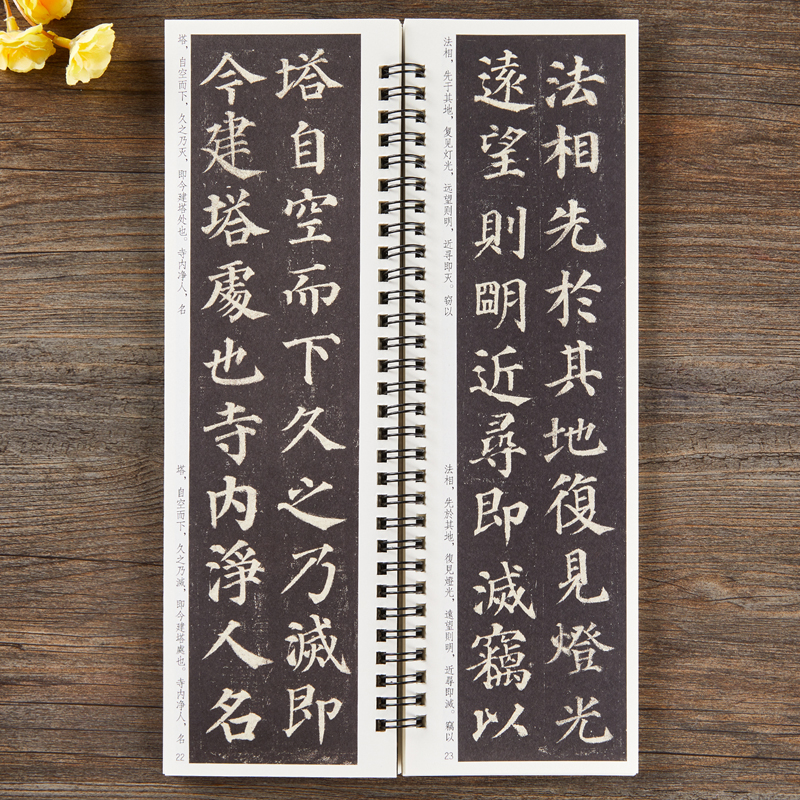 塔自空而下久之乃滅即
今建塔處也寺内淨人名
塔，自空而下，久之乃灭，即今建塔处也。寺内净人，名
塔，自空而下，久之乃滅，即今建塔處也。寺内淨人，名
22
法相先於其地復見燈光
遠望則明近尋即滅竊以
法相，先于其地，复见灯光，远望则明，近寻即灭。窃以
法相，先於其地，復見燈光，遠望則明，近尋即滅。竊以
23